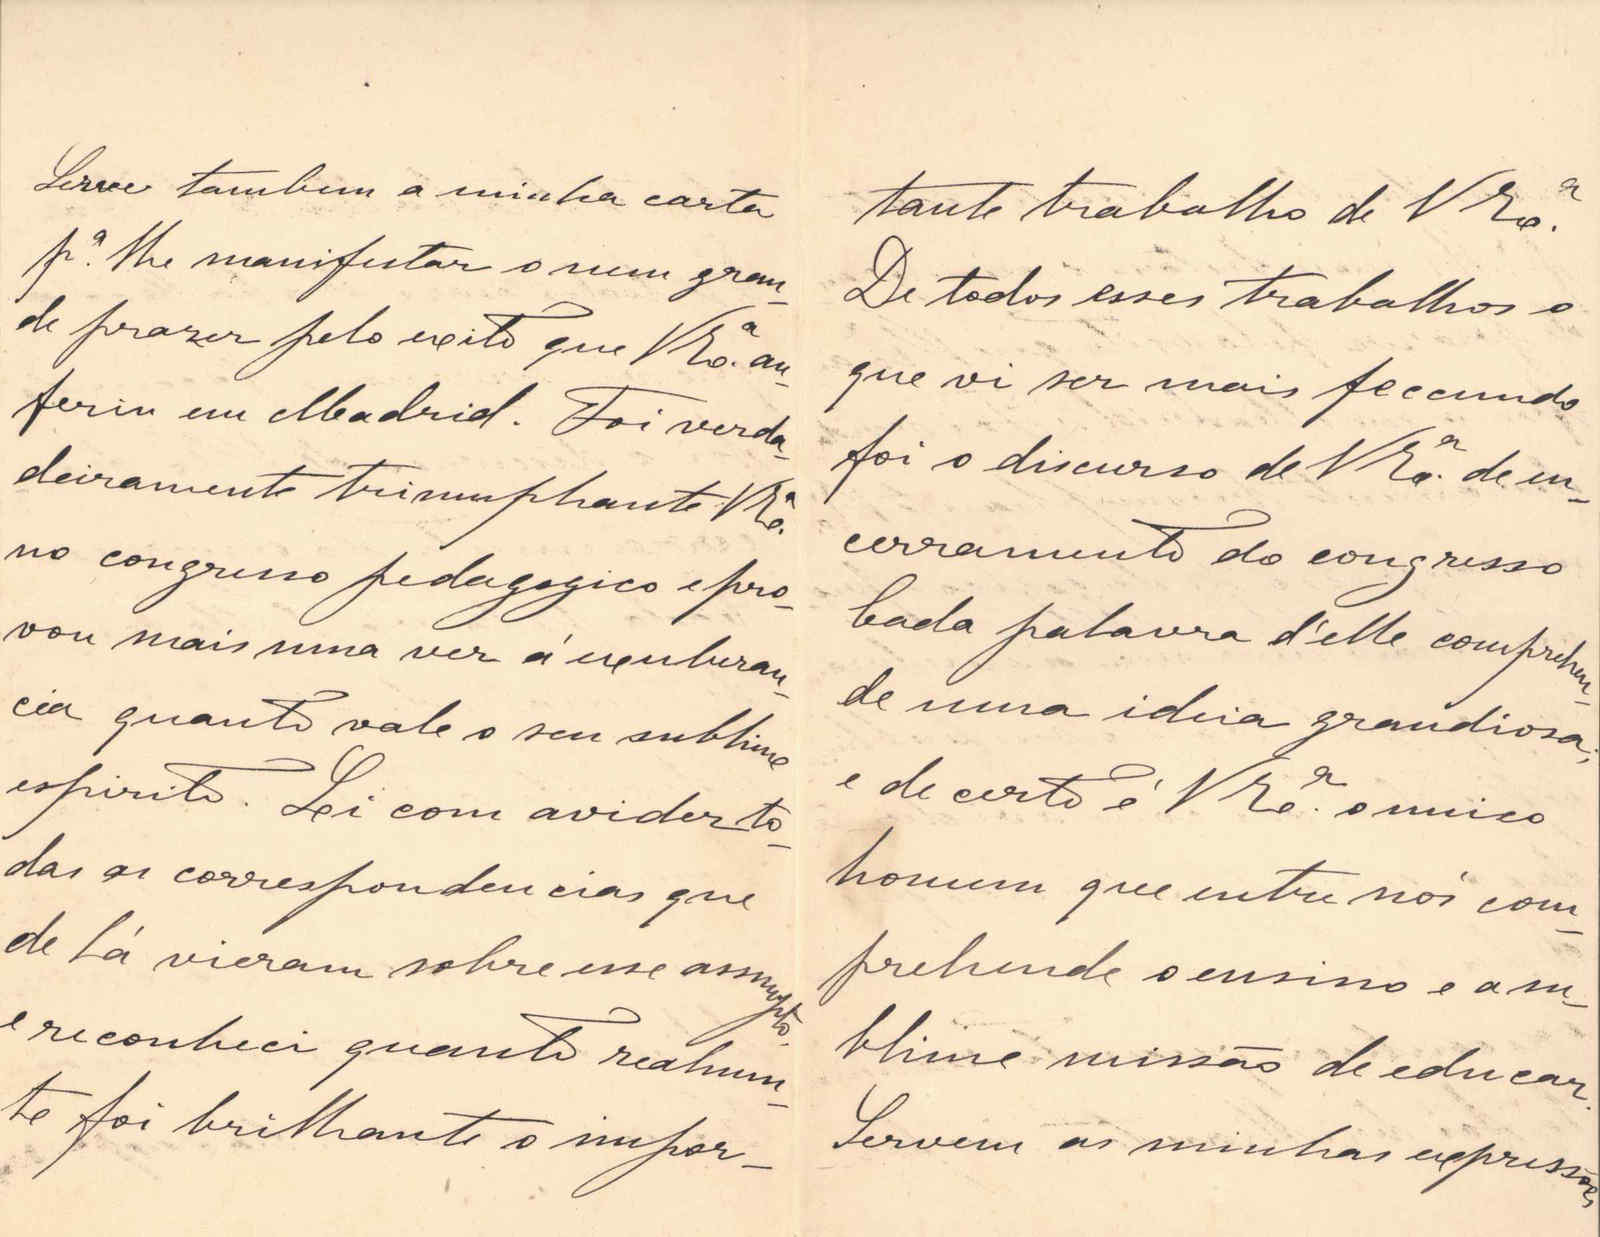 Serve tambem a minha carta
pª. lhe manifestar o meu gran-
de prazer pelo exito que V Exª. au-
feriu em Madrid. Foi verda-
deiramente triumphante V Exª.
no congresso pedagogico e pro-
vou mais uma vez á exuberan-
cia quanto vale o seu sublime
espirito. Lei com avidez to-
das as correspondencias que
de lá vieram sobre esse assumpto.
e reconheci quanto realmen-
te foi brilhante o impor-
tante trabalho de V Exª.
De todos esses trabalhos o
que vi ser mais feccundo
foi o discurso de V Exª. de en-
cerramento do congresso
Cada palavra d'elle comprehen-
de uma ideia grandiosa;
e de certo é V Exª. o unico
homem que entre nós com-
prehende o ensino e a su-
blime missão de educar.
Servem as minhas expressões